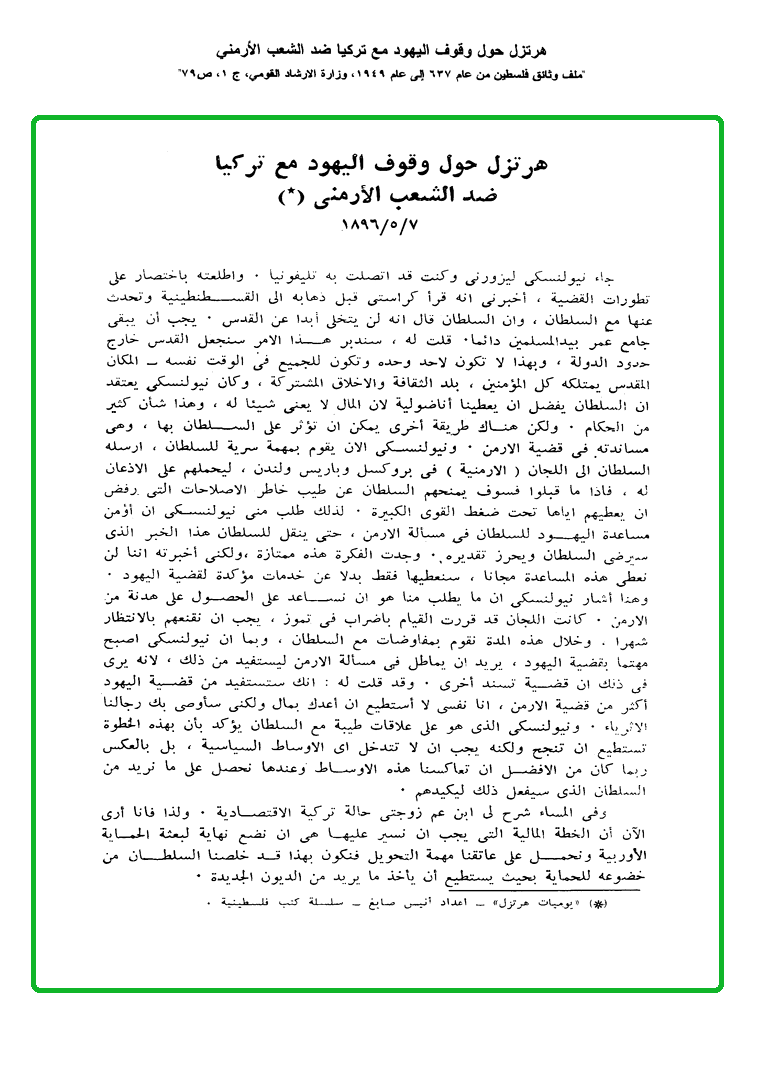 هرتزل حول وقوف اليهود مع تركيا ضد الشعب الأرمني
"ملف وثائق فلسطين من عام ٦٣٧ إلى عام ١٩٤٩، وزارة الارشاد القومي، ج ١، ص٧٩"
هرتزل حول وقوف اليهود مع تركيا
ضد الشعب الأرمنى (*)
١٨٩٦/٥/٧
جاء نيولنسكى ليزورنى وكنت قد اتصلت به تليفونيا ٠ واطلعته باختصار على
تطورات القضية ، أخبرنى انه قرأ كراستى قبل ذهابه الى القسطنطينية وتحدث
عنها مع السلطان ، وان السلطان قال انه لن يتخلى أبدا عن القدس ٠ يجب أن يبقى
جامع عمر بيدالمسلمين دائما٠ قلت له ، سندبر هذا الامر سنجعل القدس خارج
حدود الدولة ، وبهذا لا تكون لاحد وحده وتكون للجميع فى الوقت نفسه ــ المكان
المقدس يمتلكه كل المؤمنين ، بلد الثقافة والاخلاق المشتركة ، وكان نيولنسكى يعتقد
ان السلطان يفضل ان يعطينا أناضولية لان المال لا يعنى شيئا له ، وهذا شأن كثير
من الحكام ٠ ولكن هناك طريقة أخرى يمكن ان تؤثر على السلطان بها ، وهى
مساندته فى قضية الارمن ٠ ونيولنسكى الان يقوم بمهمة سرية للسلطان ، ارسله
السلطان الى اللجان ( الارمنية ) فى بروكسل وباريس ولندن ، ليحملهم على الاذعان
له ، فاذا ما قبلوا فسوف يمنحهم السلطان عن طيب خاطر الاصلاحات التى رفض
ان يعطيهم اياها تحت ضغط القوى الكبيرة ٠ لذلك طلب منى نيولنسكى ان أؤمن
مساعدة اليهود للسلطان فى مسألة الارمن ، حتى ينقل للسلطان هذا الخبر الذى
سيرضى السلطان ويحرز تقديره ٠ وجدت الفكرة هذه ممتازة ،ولكنى أخبرته اننا لن
نعطى هذه المساعدة مجانا ، سنعطيها فقط بدلا عن خدمات مؤكدة لقضية اليهود ٠
وهنا أشار نيولنسكى ان ما يطلب منا هو ان نساعد على الحصول على هدنة من
الارمن ٠ كانت اللجان قد قررت القيام باضراب فى تموز ، يجب ان نقنعهم بالانتظار
شهرا ٠ وخلال هذه المدة نقوم بمفاوضات مع السلطان ، وبما ان نيولنسكى اصبح
مهتما بقضية اليهود ، يريد ان يماطل فى مسألة الارمن ليستفيد من ذلك ، لانه يرى
فى ذلك ان قضية تسند أخرى ٠ وقد قلت له : انك ستستفيد من قضية اليهود
أكثر من قضية الارمن ، انا نفسى لا أستطيع ان أعدك بمال ولكنى سأوصى بك رجالنا
الاثرياء ٠ ونيولنسكى الذى هو على علاقات طيبة مع السلطان يؤكد بأن بهذه الخطوة
تستطيع ان تنجح ولكنه يجب ان لا تتدخل اى الاوساط السياسية ، بل بالعكس
ربما كان من الافضل ان تعاكسنا هذه الاوساط وعندها نحصل على ما نريد من
السلطان الذى سيفعل ذلك ليكيدهم ٠
وفى المساء شرح لى ابن عم زوجتى حالة تركية الاقتصادية ٠ ولذا فانا أرى
الآن أن الخطة المالية التى يجب ان نسير عليها هى ان نضع نهاية لبعثة الحماية
الأوربية ونحمل على عاتقنا مهمة التحويل فنكون بهذا قد خلصنا السلطان من
خضوعه للحماية بحيث يستطيع أن يأخذ ما يريد من الديون الجديدة ٠
(*) «يوميات هرتزل» ــ اعداد أنيس صايغ ــ سلسلة كتب فلسطينية ٠